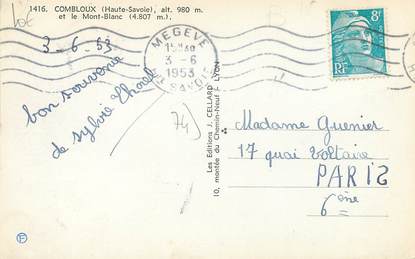 1416. COMBLOUX (Haute-Savoie), alt. 980 m.
et le Mont-Blanc (4.807 m.).
3-6-53
bon souvenir
de Sylvie
MEGEVE
3 - 6
1953
HTE SAVOIE
8F
RF
74
Les Editions J. CELLARD
10, montée du Chemin-Neuf - LYON
Madame Guenier
17 quai Voltaire
PARIS
6ème
F